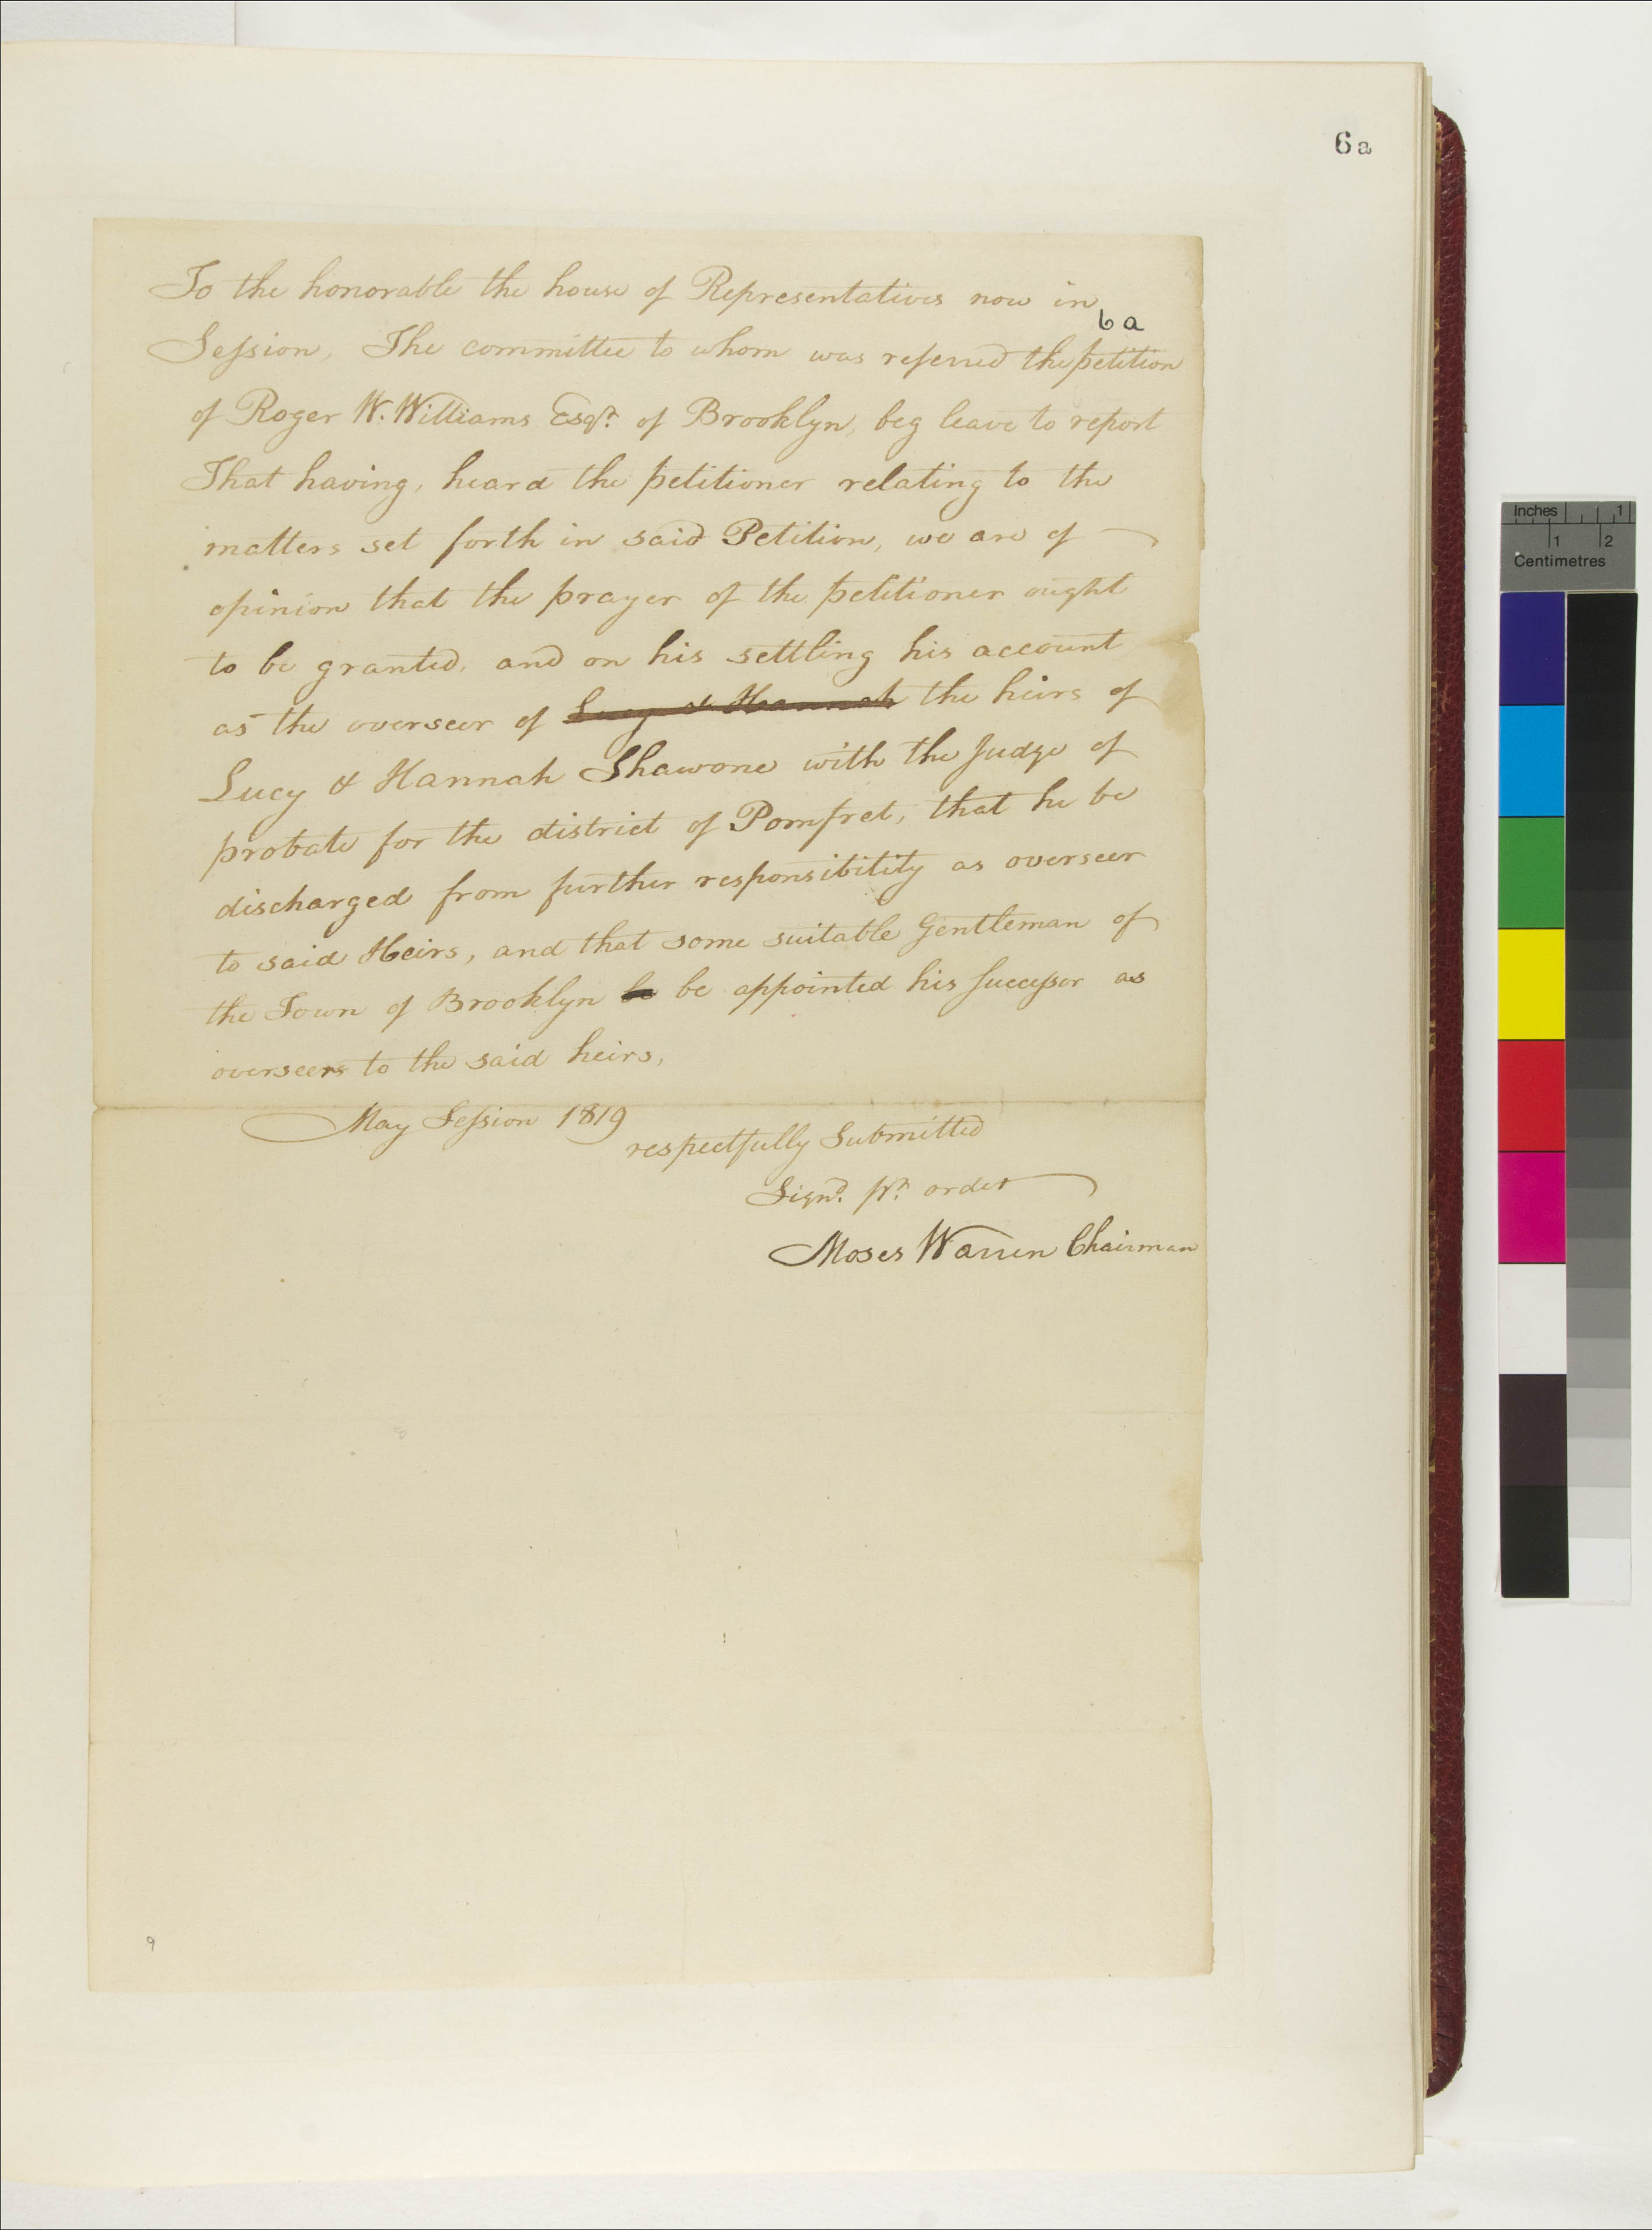 6a
To the honorable the house of Representatives now in
6a
Session, The committee to whom was referred the petition
of Roger W. Williams Esqr. of Brooklyn, beg leave to report
That having, heard the petitioner relating to the
matters set forth in said Petition, we are of
opinion that the prayer of the petitioner ought
to be granted, and on his settling his account
as the overseer of Lucy & Hannah the heirs of
Lucy & Hannah Shawone with the Judge of
probate for the district of Pomfret, that he be
discharged from further responsibility as overseer
to said Heirs, and that some suitable Gentleman of
the Town of Brooklyn be be appointed his Successor as
overseers to the said heirs,
May Session 1819
respectfully Submitted
Signd. pr. order
Moses Warren Chairman
9
Inches 1
1 2
Centimetres